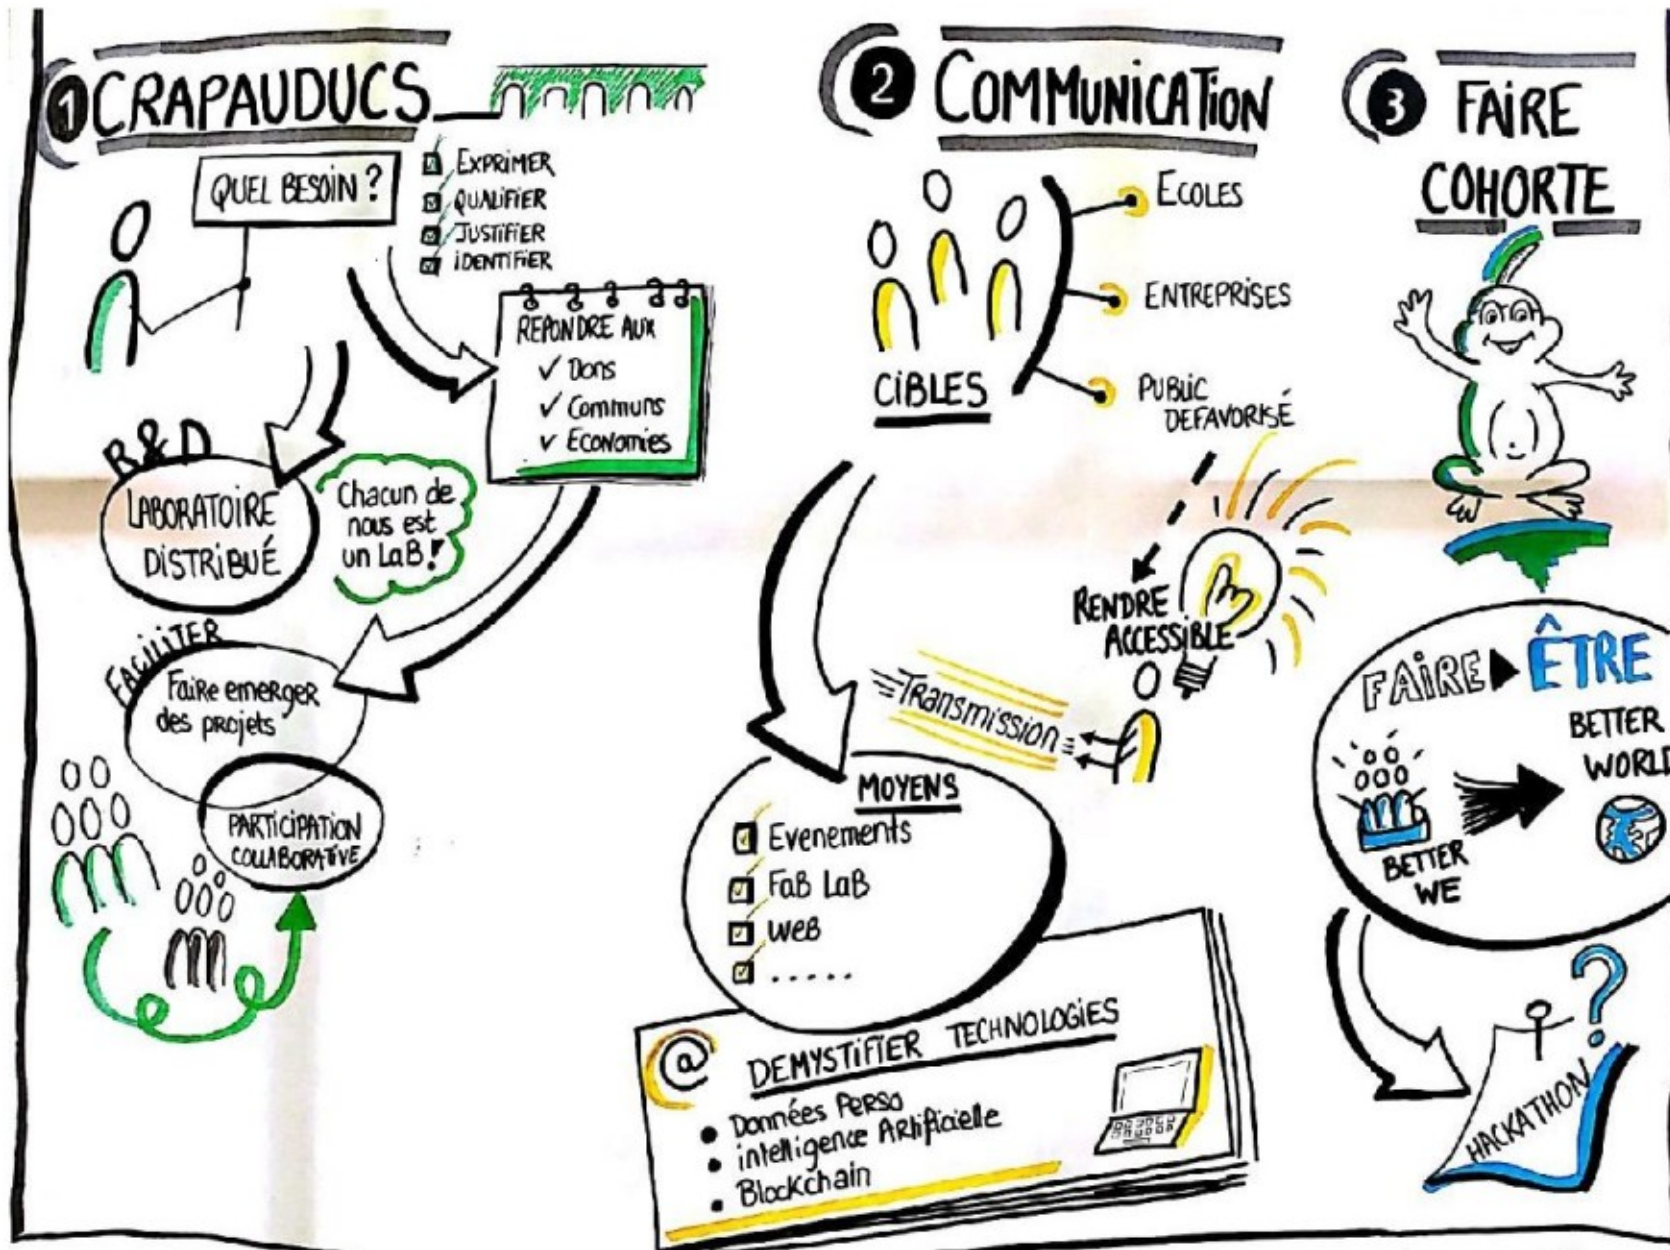 1 CRAPAUDUCS
QUEL BESOIN ?
EXPRIMER
QUALIFIER
JUSTIFIER
IDENTIFIER
REPONDRE AUX
✓ Dons
✓ Communs
✓ Economies
R&D
LABORATOIRE
DISTRIBUÉ
Chacun de
nous est
un LaB !
FACILITER
Faire emerger
des projets
PARTICIPATION
COLLABORATIVE
2 COMMUNICATION
CIBLES
ECOLES
ENTREPRISES
PUBLIC
DEFAVORISÉ
RENDRE
ACCESSIBLE
Transmission
MOYENS
Evenements
FaB LaB
WeB
.....
@ DEMYSTIFIER TECHNOLOGIES
• Données Perso
• intelligence Artificielle
• Blockchain
3 FAIRE
COHORTE
FAIRE ▶ ÊTRE
BETTER
WORLD
BETTER
WE
?
HACKATHON